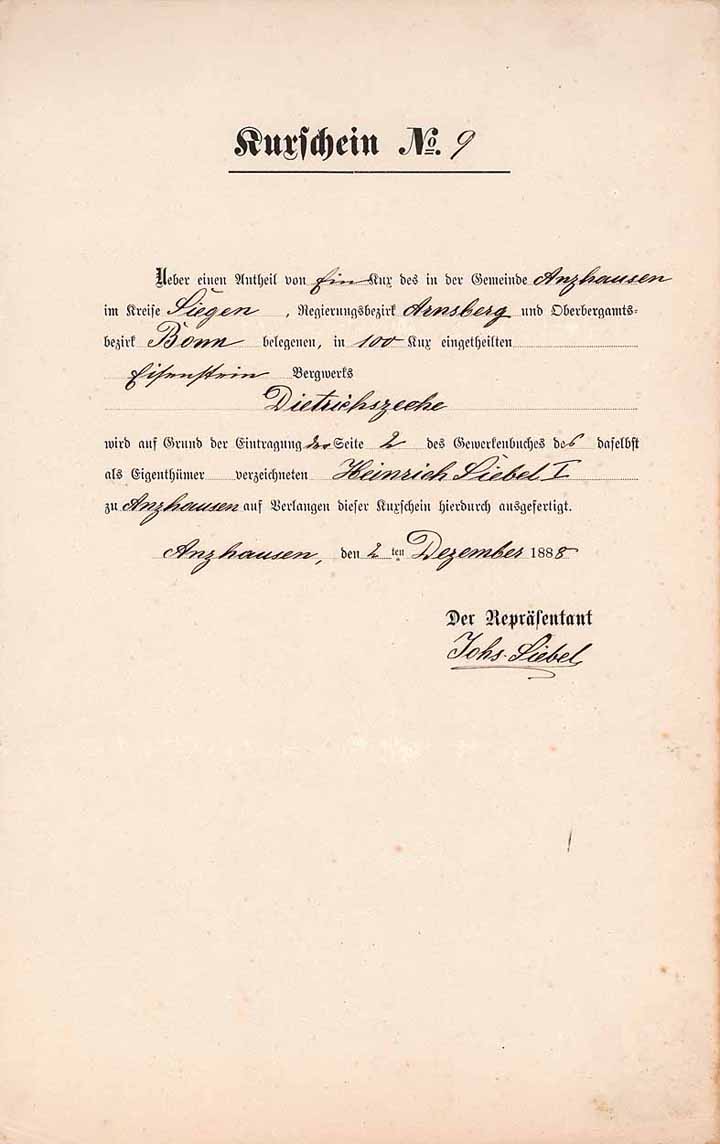 Kuxschein No. 9
Ueber einen Antheil von Ein Kux des in der Gemeinde Anzhausen
im Kreise Siegen, Regierungsbezirk Arnsberg und Oberbergamts-
bezirk Bonn belegenen, in 100 Kux eingetheilten
Eisenstein Bergwerks
Dietrichszeche
wird auf Grund der Eintragung Seite 2 des Gewerkenbuches des daselbst
als Eigenthümer verzeichneten Heinrich Siebel I
zu Anzhausen auf Verlangen dieser Kuxschein hierdurch ausgefertigt.
Anzhausen, den 2ten Dezember 1888
Der Repräsentant
Johs. Siebel